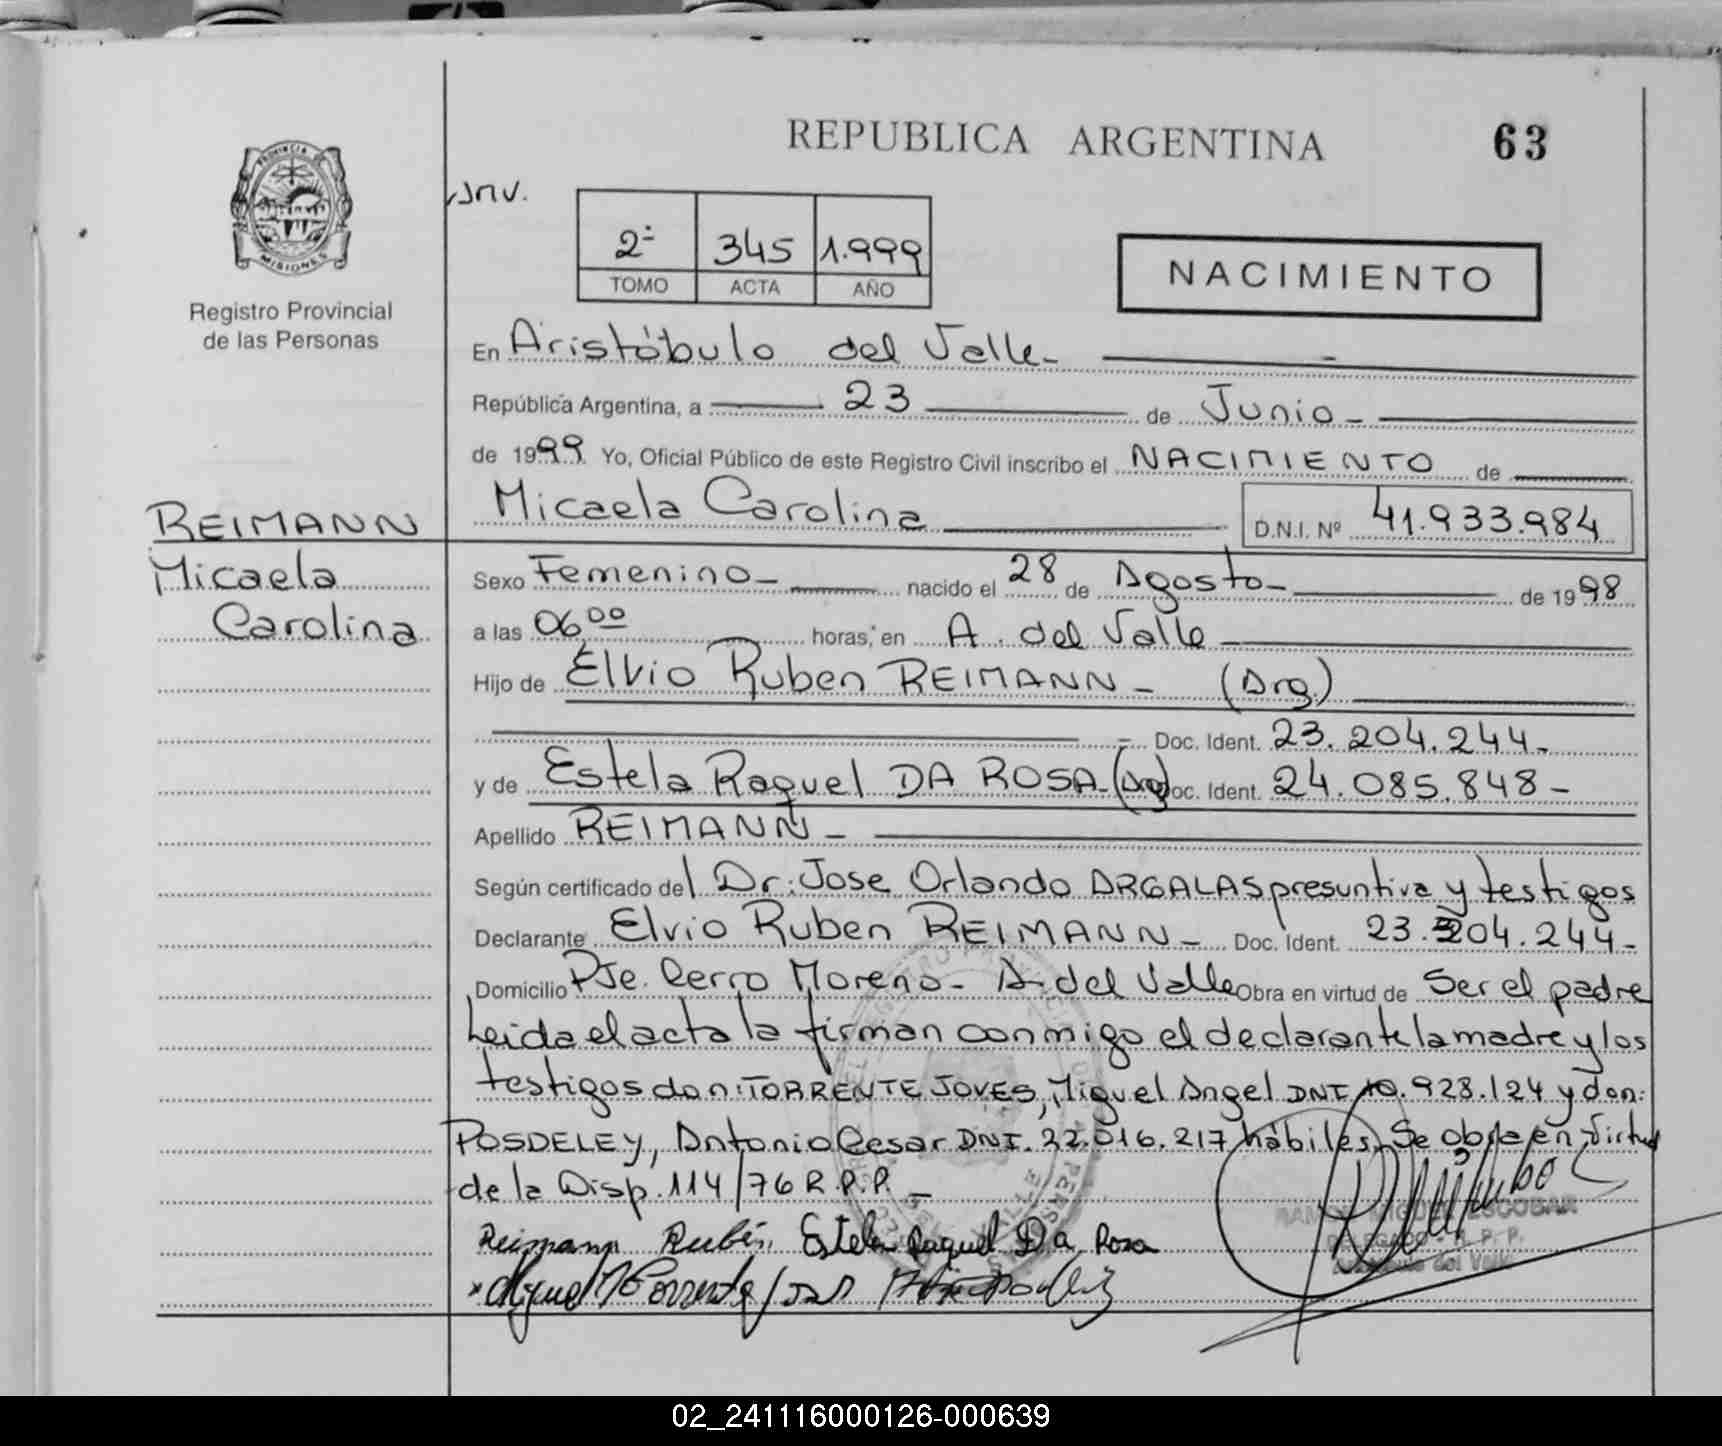 REPUBLICA ARGENTINA
63
PROVINCIA DE
MISIONES
Registro Provincial
de las Personas
INV.
2º 345 1.999
TOMO ACTA AÑO
NACIMIENTO
En Aristóbulo del Valle
República Argentina, a 23 de Junio
de 1999 Yo, Oficial Público de este Registro Civil inscribo el NACIMIENTO de
Micaela Carolina D.N.I. Nº 41.933.984
REIMANN
Micaela
Carolina
Sexo Femenino nacido el 28 de Agosto de 1998
a las 06,00 horas, en A. del Valle
Hijo de Elvio Ruben REIMANN (Arg.)
Doc. Ident. 23.204.244
y de Estela Raquel DA ROSA (Arg) Doc. Ident. 24.085.848
Apellido REIMANN
Según certificado del Dr. Jose Orlando ARGALAS presuntiva y testigos
Declarante Elvio Ruben REIMANN Doc. Ident. 23.204.244
Domicilio Pje. Cerro Moreno - A. del Valle Obra en virtud de Ser el padre
Leida el acta la firman conmigo el declarante la madre y los
testigos don: TORRENTE JOVES, Miguel Angel DNI 10.928.124 y don:
POSDELEY, Antonio Cesar DNI. 22.016.217 hábiles. Se obra en virtud
de la Disp. 114/76 R.P.P.
Reimann Rubén Estela Raquel Da Rosa
RAMON MIGUEL ESCOBAR
DELEGADO - R. P. P.
Aristóbulo del Valle
02_241116000126-000639